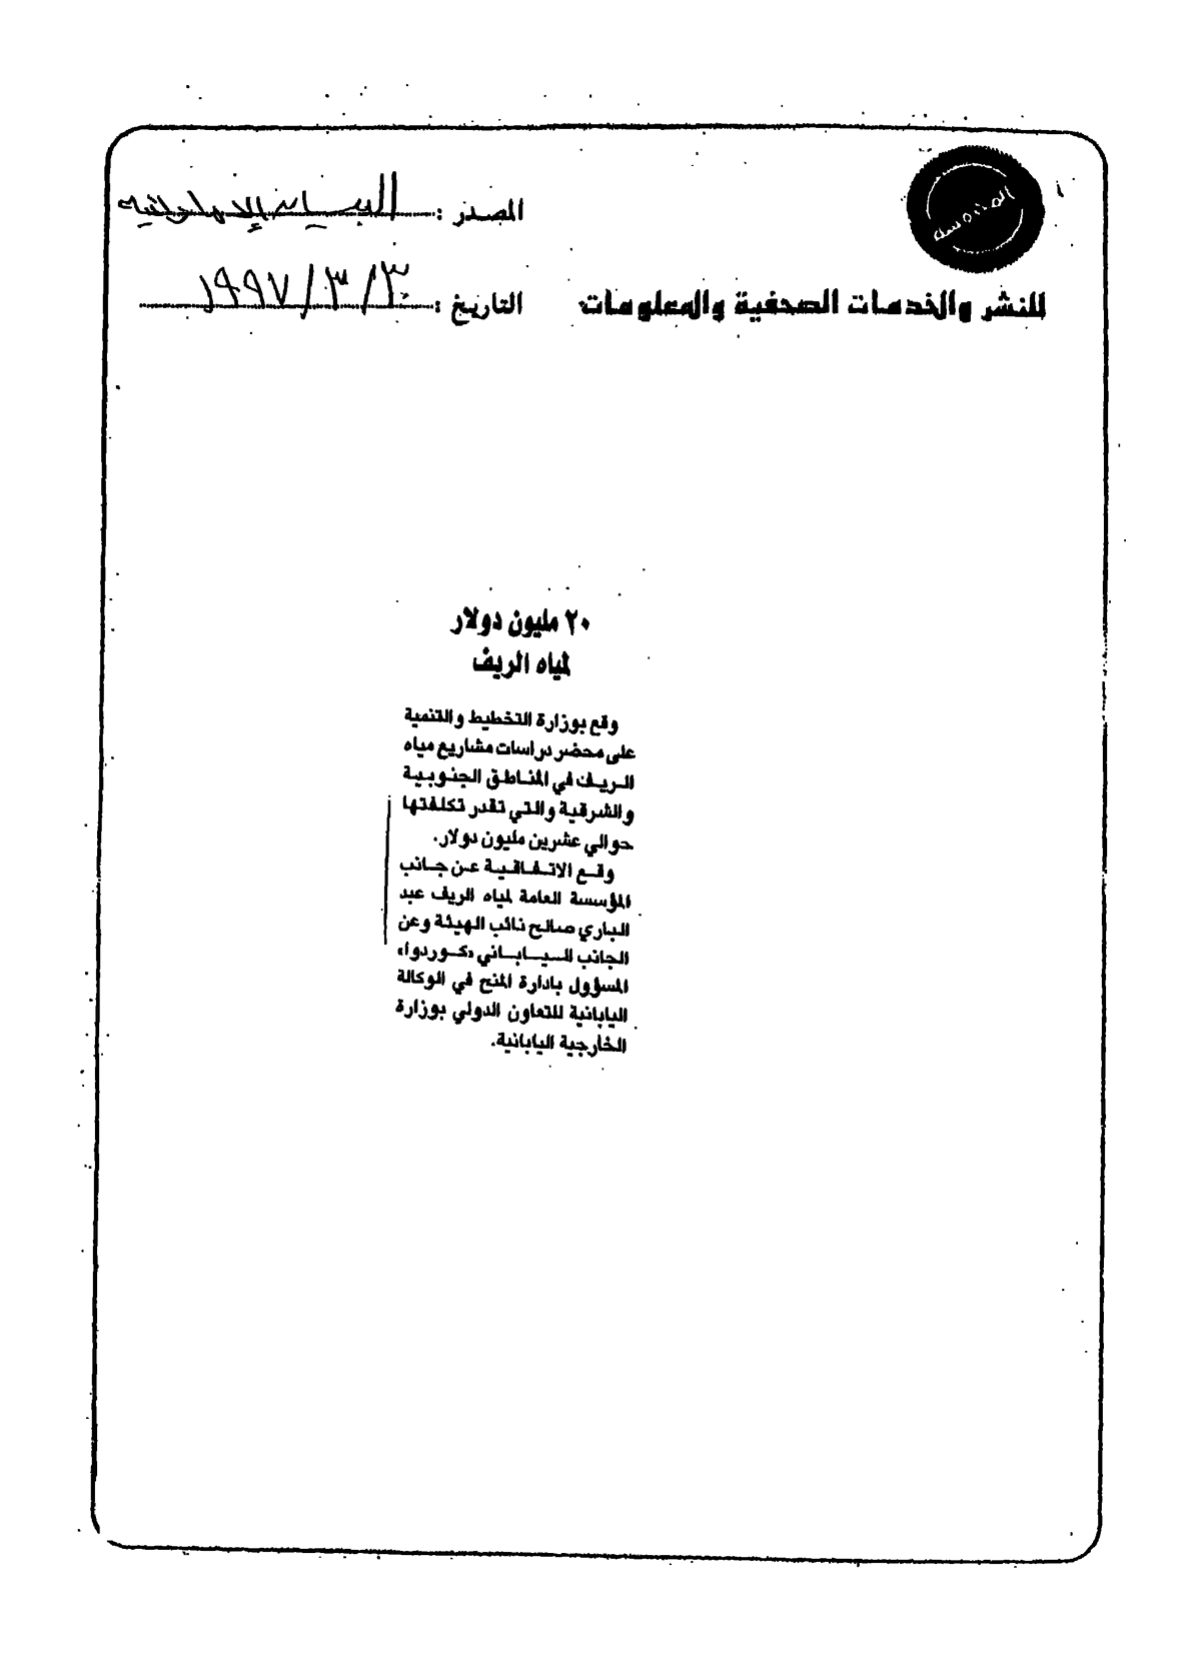 المحروسة
المصدر : البيان الإماراتية
للنشر والخدمات الصحفية والمعلومات
التاريخ : ٣٠/٣/١٩٩٧
٢٠ مليون دولار
لمياه الريف
وقع بوزارة التخطيط والتنمية
على محضر دراسات مشاريع مياه
الريف في المناطق الجنوبية
والشرقية والتي تقدر تكلفتها
حوالي عشرين مليون دولار.
وقع الاتفاقية عن جانب
المؤسسة العامة لمياه الريف عبد
الباري صالح نائب الهيئة وعن
الجانب السياباني «كوردوا»
المسؤول بادارة المنح في الوكالة
اليابانية للتعاون الدولي بوزارة
الخارجية اليابانية.